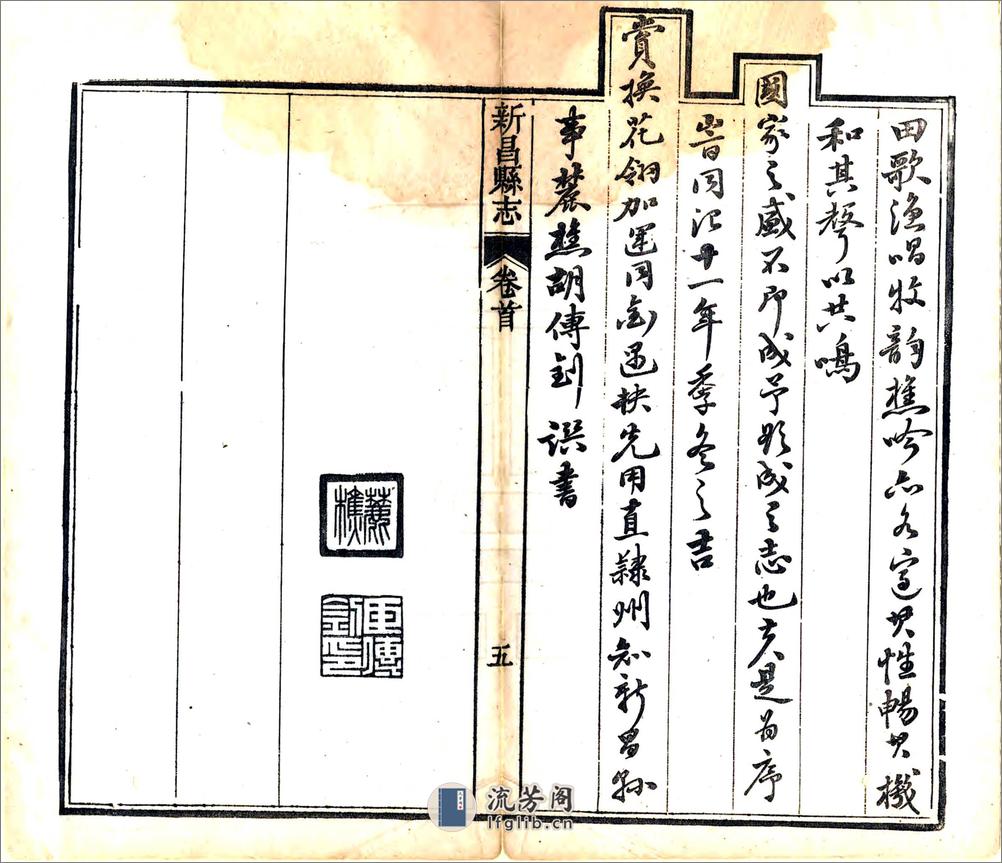 田歌漁唱牧韵樵吟亦各適其性暢其機
和其聲以共鳴
國家之盛不即成予成之志也夫是為序
峕同治十一年季冬之吉
賞換花翎加運同銜遇缺先用直隸州知新昌縣
事麓樵胡傳釗譔書
新昌縣志 卷首 五
麓樵
臣傳釗印
流芳阁
lfglib.cn